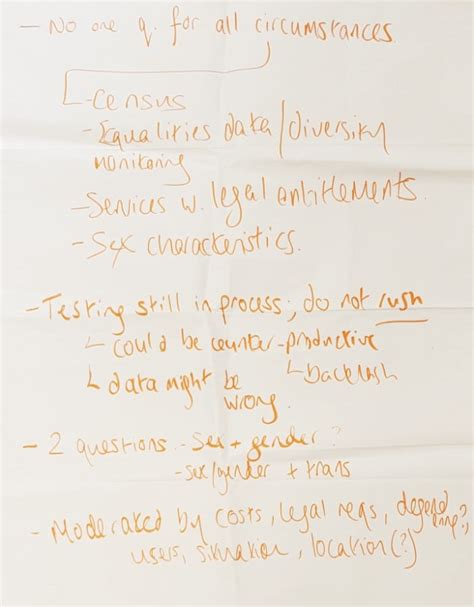 - No one q. for all circumstances
- Census
- Equalities data / diversity
monitoring
- Services w. legal entitlements.
- Sex characteristics.
- Testing still in process; do not rush
could be counter-productive
data might be backlash
wrong.
- 2 questions - sex + gender?
- sex/gender + trans
- Moderated by costs, legal reqs,
users, situation, location (?)